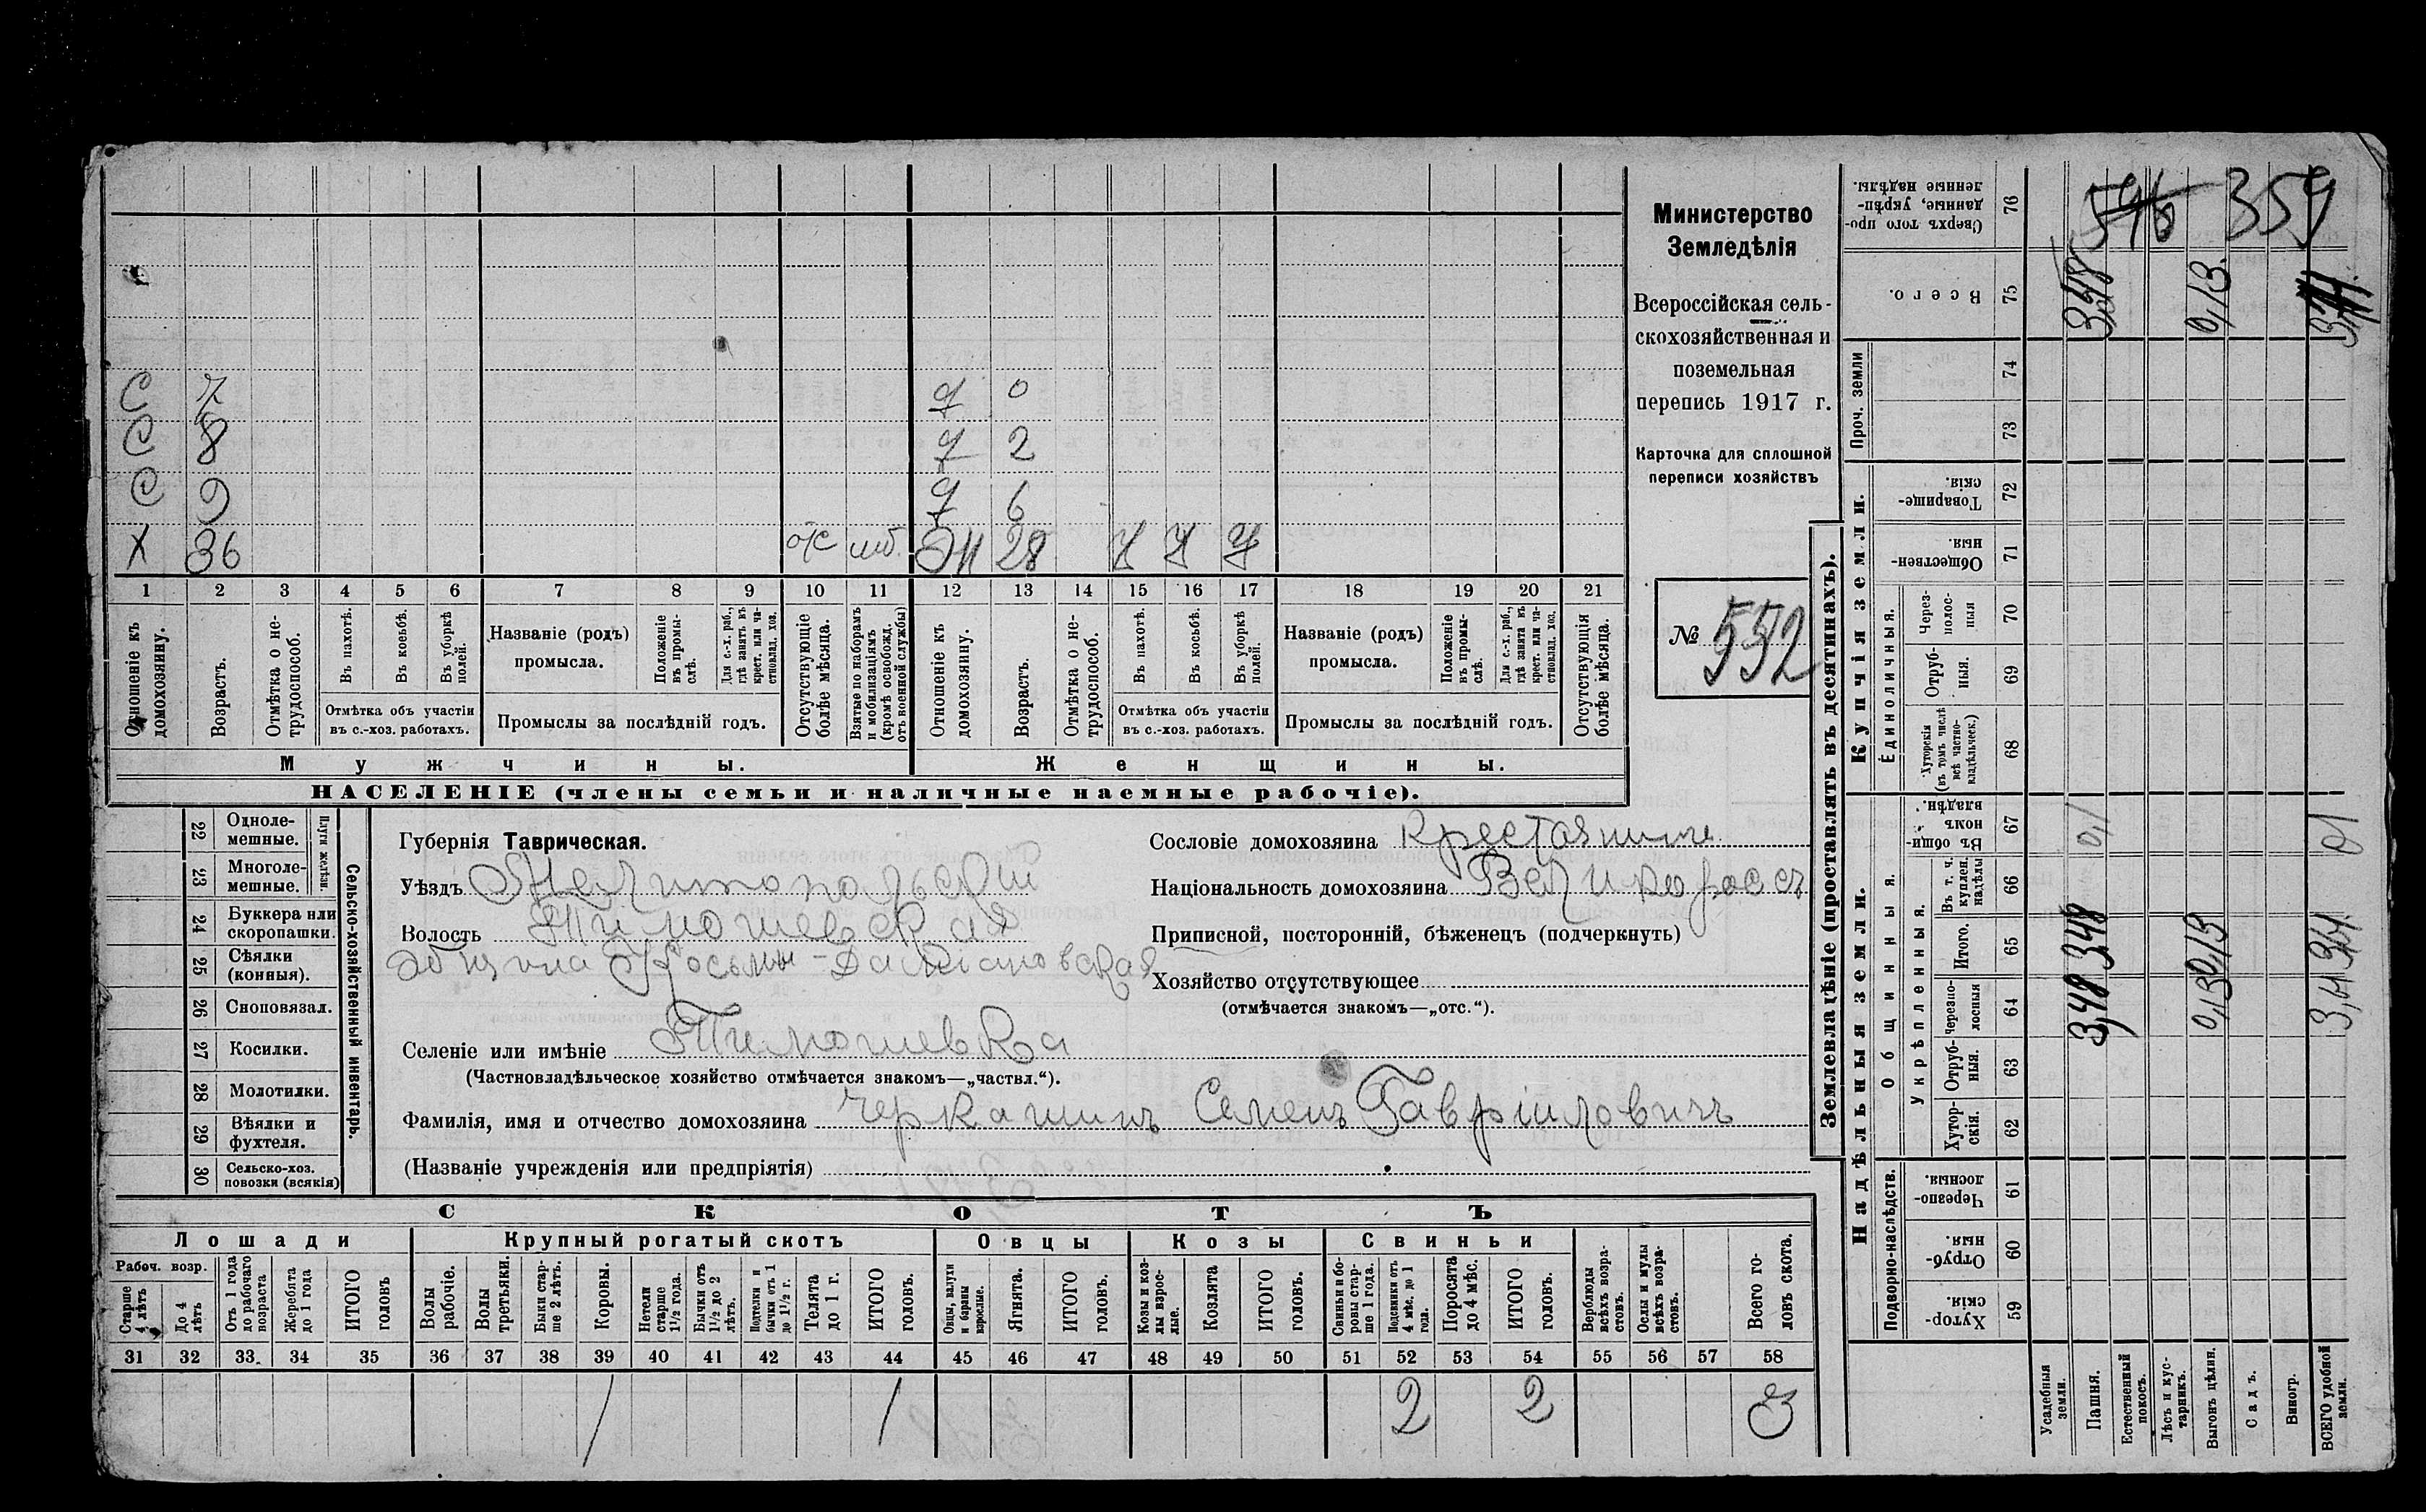 Министерство
Земледѣлія
Всероссійская сель-
скохозяйственная и
поземельная
перепись 1917 г.
Карточка для сплошной
переписи хозяйствъ
№ 552
С 7 0
С 8 2
С 9 6
Х 36 отс моб. 28
1 2 3 4 5 6 7 8 9 10 11 12 13 14 15 16 17 18 19 20 21
Отношеніе къ домохозяину.
Возрастъ.
Отмѣтка о не-трудоспособ.
Въ пахотѣ.
Въ косьбѣ.
Въ уборкѣ полей.
Отмѣтка объ участіи
въ с.-хоз. работахъ.
Названіе (родъ)
промысла.
Положеніе въ промы-слѣ.
Для с.-х. раб., гдѣ занятъ въ крест. или ча-стновлад. хоз.
Промыслы за послѣдній годъ.
Отсутствующіе болѣе мѣсяца.
Взятые по наборамъ и мобилизаціямъ (кромѣ освобожд. отъ военной службы)
Отношеніе къ домохозяину.
Возрастъ.
Отмѣтка о не-трудоспособ.
Въ пахотѣ.
Въ косьбѣ.
Въ уборкѣ полей.
Отмѣтка объ участіи
въ с.-хоз. работахъ.
Названіе (родъ)
промысла.
Положеніе въ промы-слѣ.
Для с.-х. раб., гдѣ занята въ крест. или ча-стновлад. хоз.
Промыслы за послѣдній годъ.
Отсутствующія болѣе мѣсяца.
Мужчины.
Женщины.
НАСЕЛЕНІЕ (члены семьи и наличные наемные рабочіе).
22 Одноле-мешные.
23 Многоле-мешные.
Плуги желѣзн.
24 Буккера или скоропашки.
25 Сѣялки (конныя).
26 Сноповязал.
27 Косилки.
28 Молотилки.
29 Вѣялки и фухтеля.
30 Сельско-хоз. повозки (всякія)
Сельско-хозяйственный инвентарь.
Губернія Таврическая.
Уѣздъ Мелитопольскій
Волость Тимошевская
Община Косьмы-Даміановская
Селеніе или имѣніе Тимошевка
(Частновладѣльческое хозяйство отмѣчается знакомъ—„частвл.“).
Фамилія, имя и отчество домохозяина Черкашинъ Семенъ Гавріиловичъ
(Названіе учрежденія или предпріятія)
Сословіе домохозяина Крестьянинъ
Національность домохозяина Великороссъ
Приписной, посторонній, бѣженецъ (подчеркнуть)
Хозяйство отсутствующее
(отмѣчается знакомъ—„отс.“).
СКОТЪ
Лошади
Крупный рогатый скотъ
Овцы
Козы
Свиньи
Рабоч. возр.
Старше 4 лѣтъ
До 4 лѣтъ
Отъ 1 года до рабочаго возраста
Жеребята до 1 года
ИТОГО головъ
Волы рабочіе.
Волы третьяки.
Быки стар-ше 2 лѣтъ.
Коровы.
Нетели старше 1½ года.
Бычки отъ 1½ до 2 лѣтъ.
Подтелки и бычки отъ 1 до 1½ г.
Телята до 1 г.
ИТОГО головъ.
Овцы, валухи и бараны взрослые.
Ягнята.
ИТОГО головъ.
Козы и коз-лы взрос-лые.
Козлята
ИТОГО головъ.
Свиньи и бо-ровы стар-ше 1 года.
Подсвинки отъ 4 мѣс. до 1 года.
Поросята до 4 мѣс.
ИТОГО головъ.
Верблюды всѣхъ возра-стовъ.
Ослы и мулы всѣхъ возра-стовъ.
Всего го-ловъ скота.
31 32 33 34 35 36 37 38 39 40 41 42 43 44 45 46 47 48 49 50 51 52 53 54 55 56 57 58
1 1 2 2 3
Землевладѣніе (проставлять въ десятинахъ).
Надѣльныя земли.
Купчія земли.
Проч. земли
Подворно-наслѣдств.
Общинныя.
Укрѣпленныя.
Единоличныя.
Хутор-скія. 59
Отруб-ныя. 60
Черезпо-лосныя. 61
Хутор-скія. 62
Отруб-ныя. 63
Черезпо-лосныя 64
Итого. 65
Въ т. ч. куплен. надѣлы 66
Въ общин-номъ владѣн. 67
Хуторскія (въ томъ числѣ всѣ частно-владѣльческ.) 68
Отруб-ныя. 69
Через-полос-ныя 70
Обществен-ныя. 71
Товарище-скія. 72
73
74
Всего. 75
Сверхъ того про-данные, укрѣп-ленные надѣлы. 76
Усадебныя земли.
Пашня.
Естественный покосъ.
Лѣсъ и кус-тарникъ.
Выгонъ цѣлин.
Садъ.
Виногр.
ВСЕГО удобной земли.
3,48 348 0,1 3,48
0,13 0,13 0,13
359